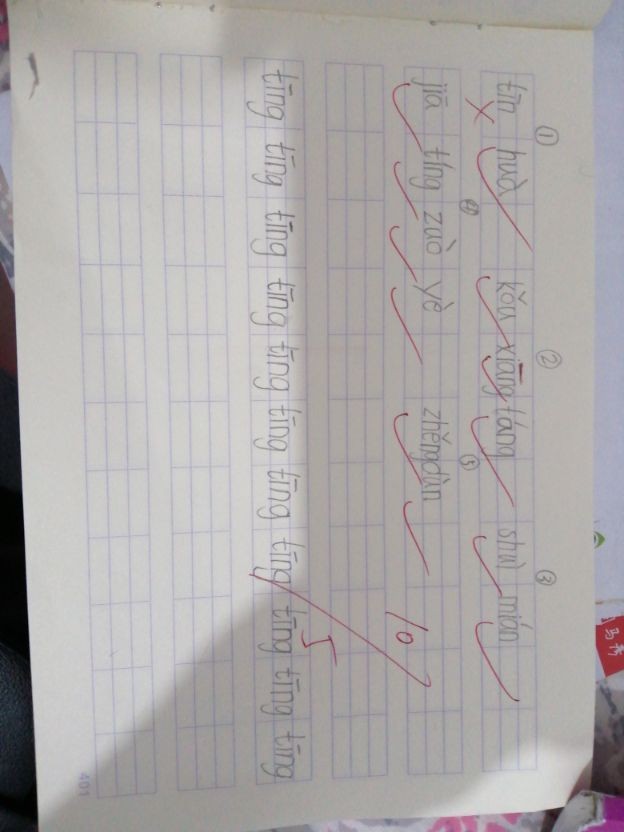 ① ② ③
tīn huà kǒu xiāng táng shuì mián
④ ⑤
jiā tíng zuò yè zhěngdùn
10
5
tīng tīng tīng tīng tīng tīng tīng tīng tīng tīng tīng
401